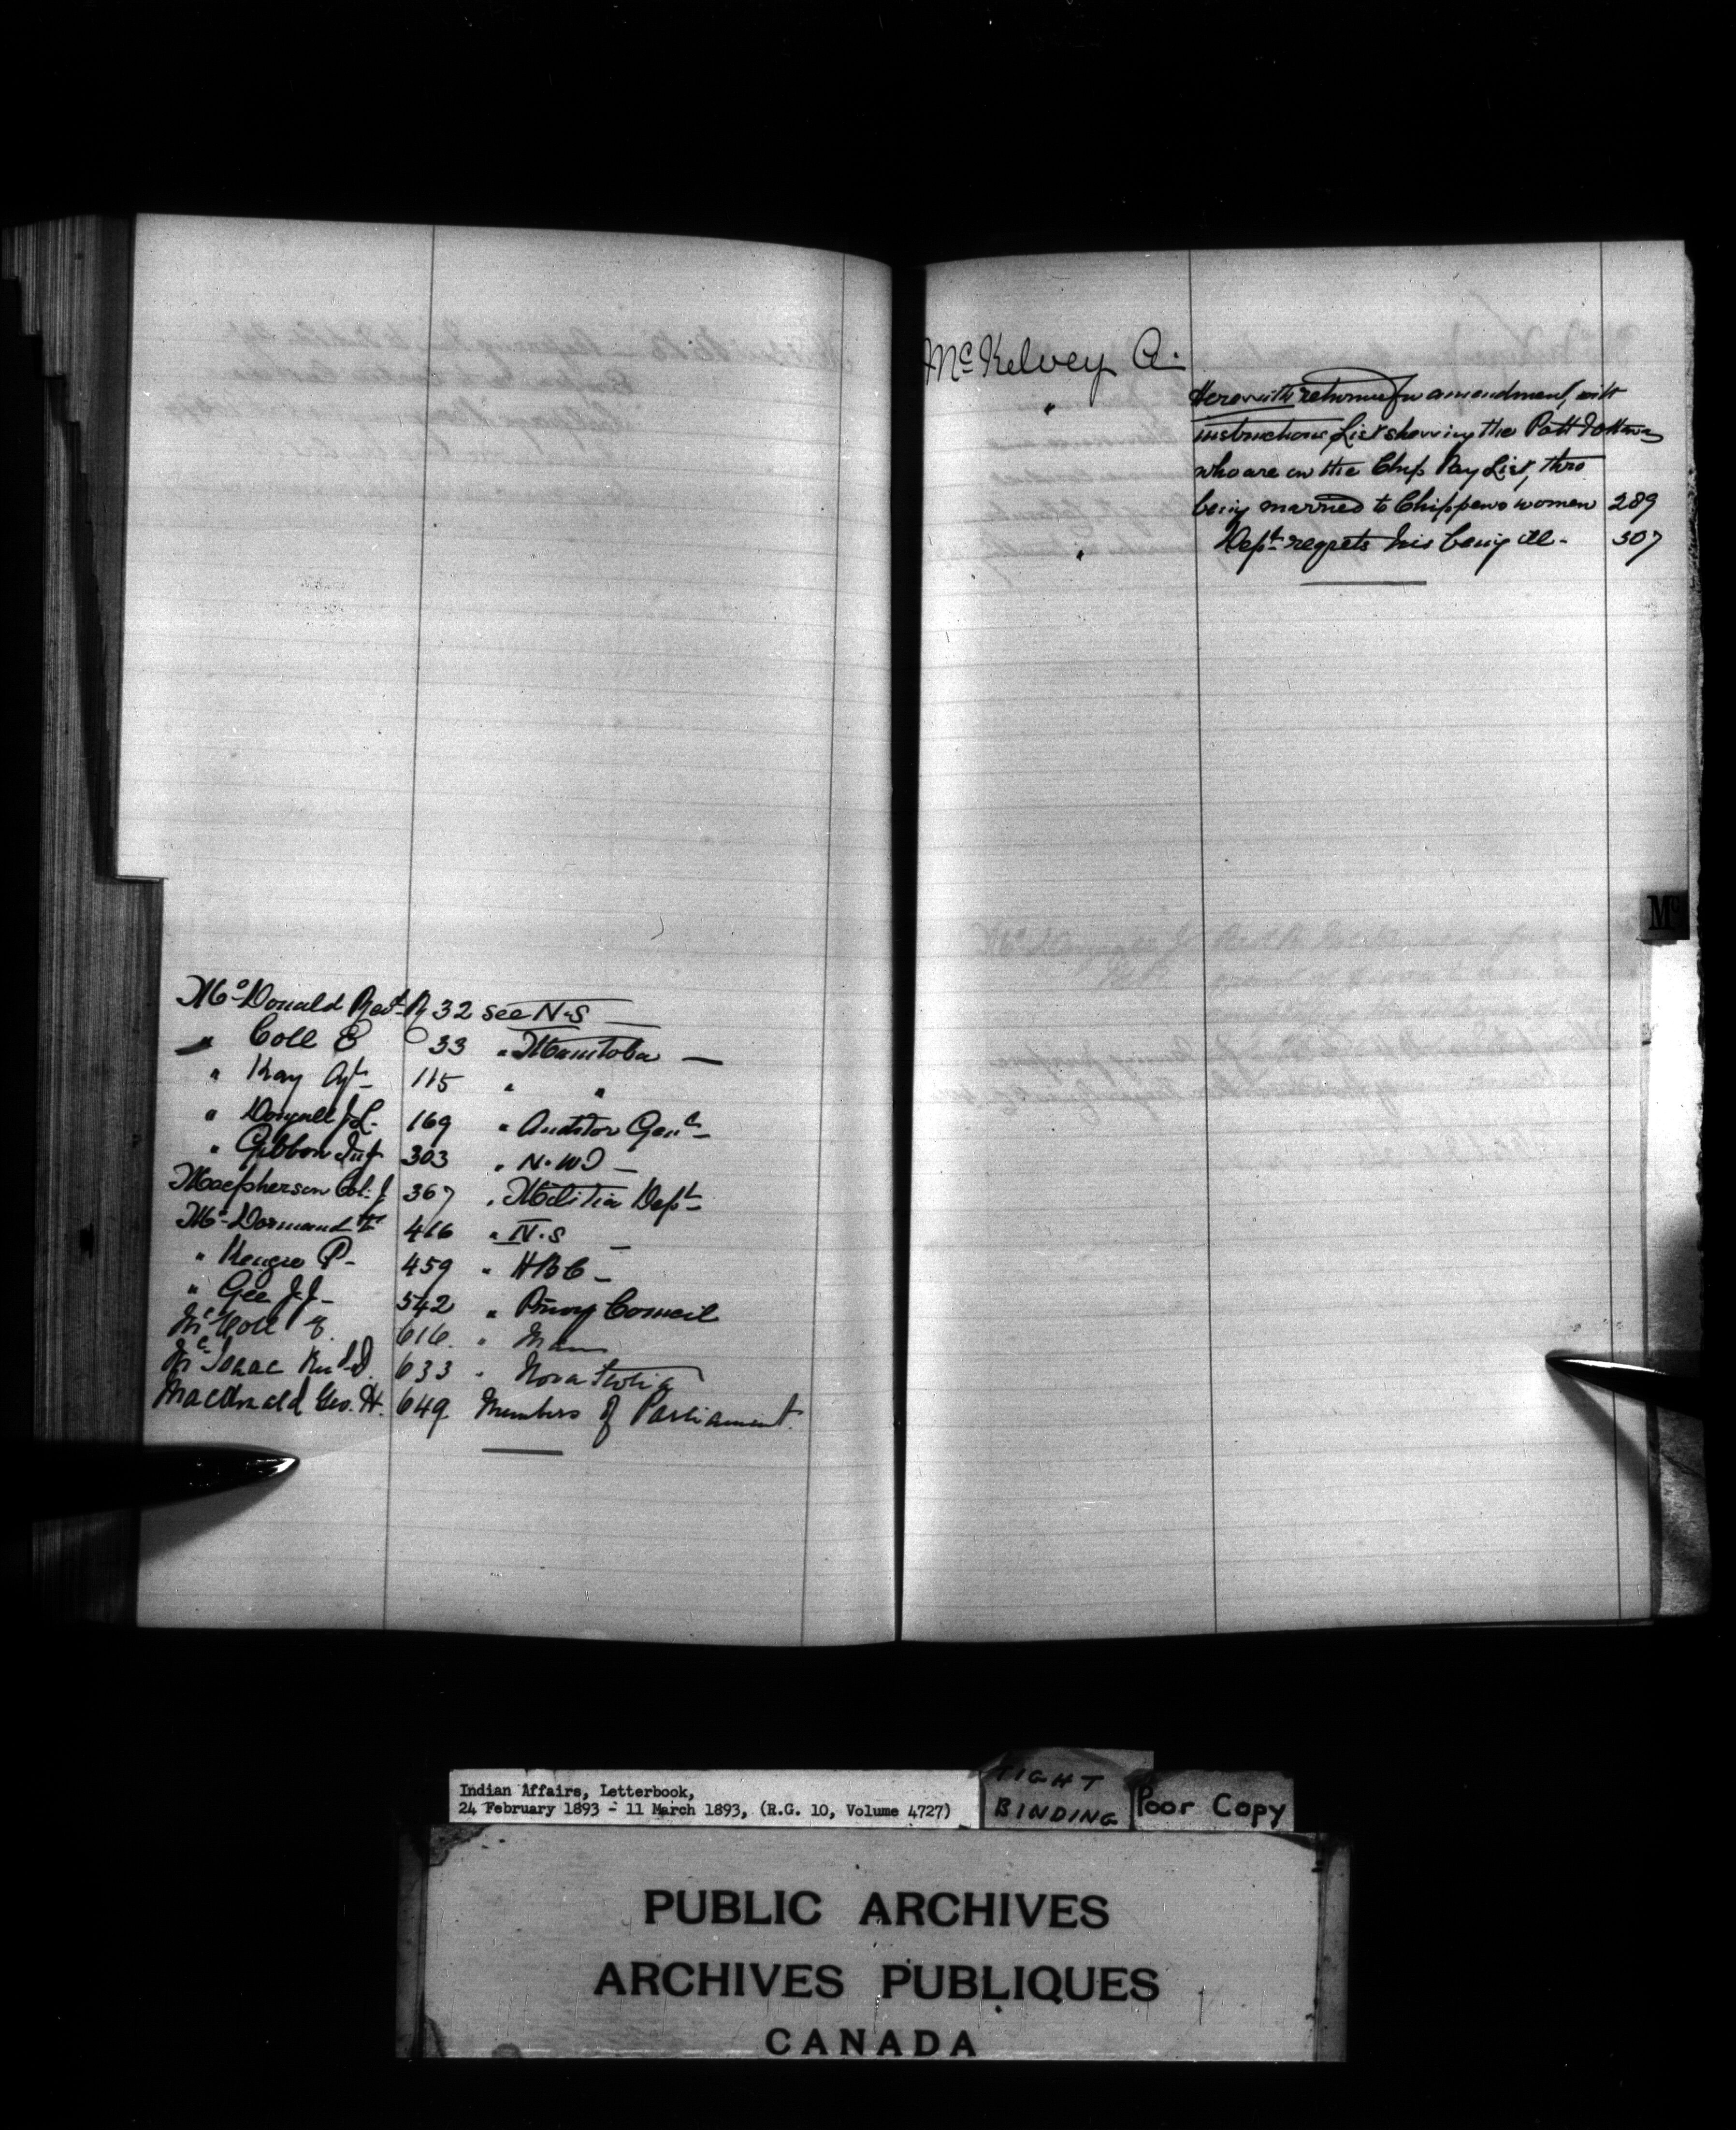 McDonald Revd R 32 see N.S
" Coll E 33 " Manitoba
" Kay Agt 115 " "
" Dougall J.L. 169 " Auditor Genl
" Gibbon Insp 303 " N.W.T
Macpherson Col. J. 367 " Militia Dept
McDormand 416 " N.S
" Kenzie P 459 " H B C
" Gee J.J. 542 " Privy Council
McColl E. 616. " Man
McIsaac Revd D. 633 " Nova Scotia
Macdonald Geo. H. 649 Members of Parliament.
McKelvey A.
" Herewith returned for amendment, with
instructions List shewing the Pottdottawa
who are on the Chip Pay List, thro
being married to Chippewa women 289
" Dept regrets his being ill - 307
Mc
Indian Affairs, Letterbook,
24 February 1893 - 11 March 1893, (R.G. 10, Volume 4727)
TIGHT
BINDING
Poor Copy
PUBLIC ARCHIVES
ARCHIVES PUBLIQUES
CANADA